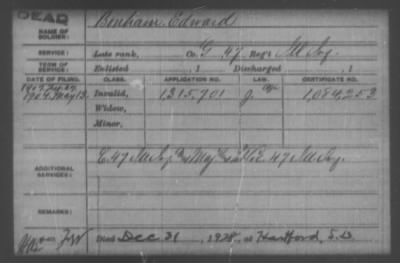 DEAD
NAME OF SOLDIER: Benham, Edward
SERVICE: Late rank, Co. G, 47 Reg't Ill Inf.
TERM OF SERVICE: Enlisted , 1 Discharged , 1
DATE OF FILING. CLASS. APPLICATION NO. LAW. CERTIFICATE NO.
1904 May 13. Invalid, 1,315,701 1,084,253
Widow,
Minor,
ADDITIONAL SERVICES: E. 47 Ill Inf
REMARKS:
Died Dec 31, 1928, at Hartford, S.D.